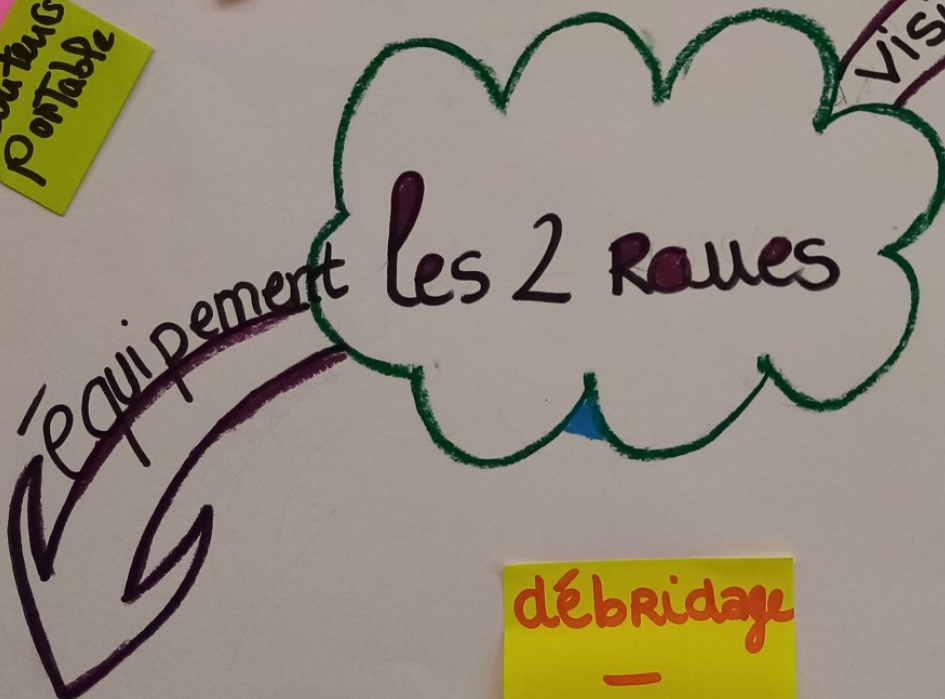 Portable
les 2 Roues
équipement
débridage